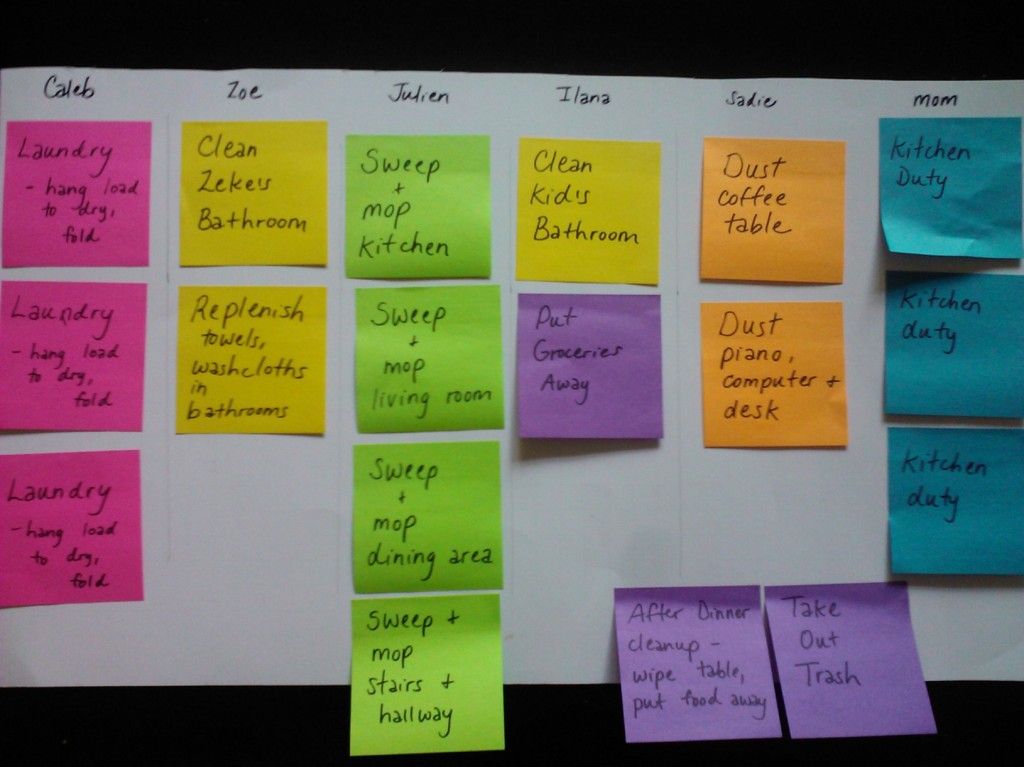 Caleb
Zoe
Julien
Ilana
Sadie
mom
Laundry
- hang load
to dry,
fold
Laundry
- hang load
to dry,
fold
Laundry
- hang load
to dry,
fold
Clean
Zeke's
Bathroom
Replenish
towels,
washcloths
in
bathrooms
Sweep
+
mop
kitchen
Sweep
+
mop
living room
Sweep
+
mop
dining area
Sweep +
mop
stairs +
hallway
Clean
kid's
Bathroom
Put
Groceries
Away
Dust
coffee
table
Dust
piano,
computer +
desk
Kitchen
Duty
Kitchen
duty
Kitchen
duty
After Dinner
cleanup -
wipe table,
put food away
Take
Out
Trash